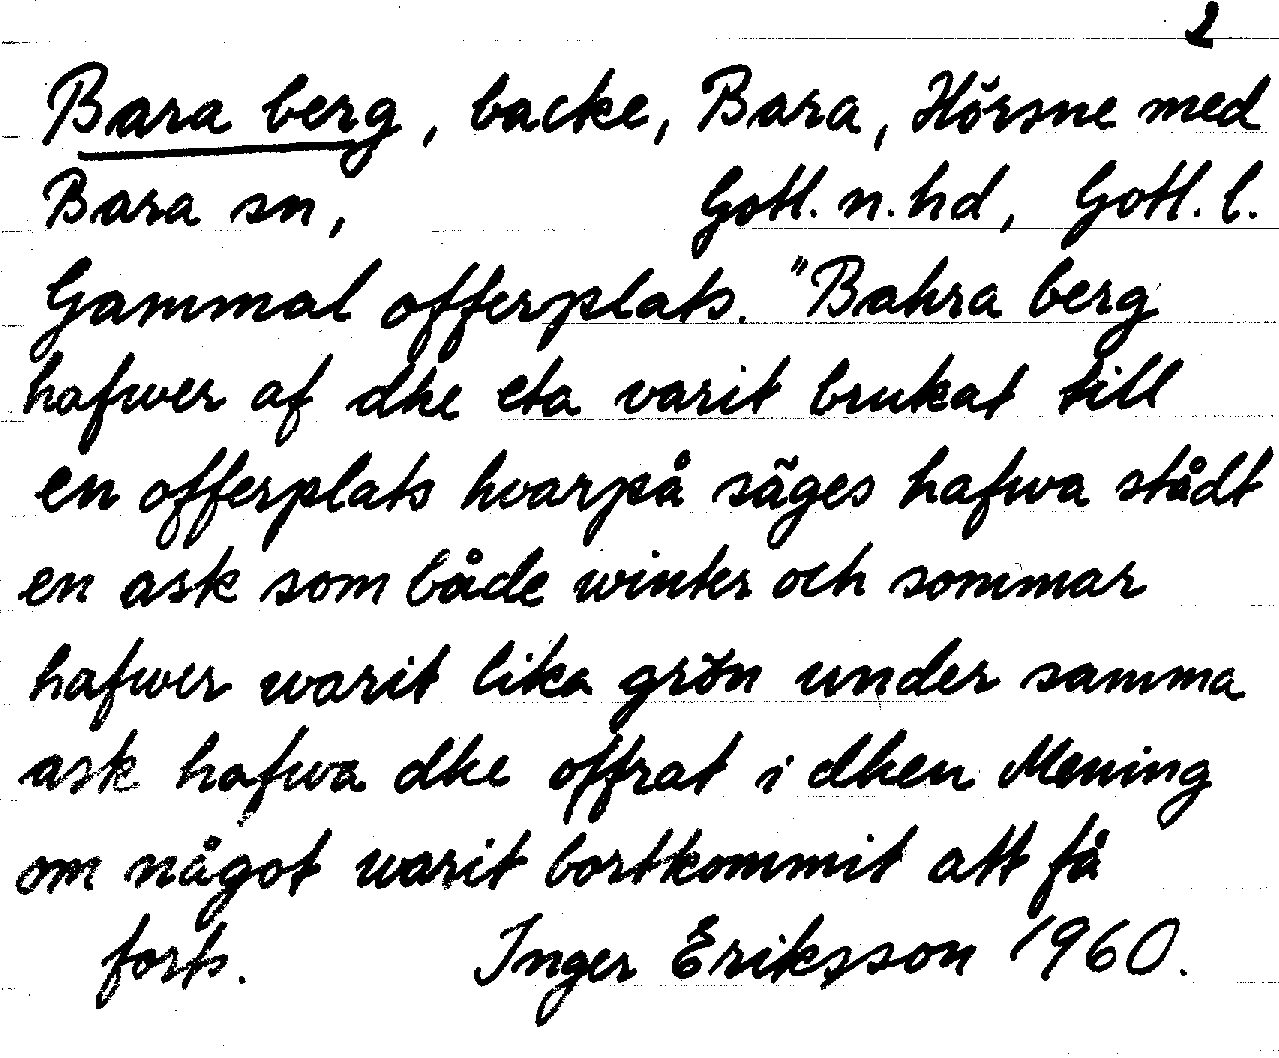 2
Bara berg, backe, Bara, Hörsne med
Bara sn, Gotl. n. hd, Gotl. l.
Gammal offerplats. "Bahra berg
hafwer af dhe eta varit brukat till
en offerplats hvarpå säges hafwa stådt
en ask som både winter och sommar
hafwer warit lika grön under samma
ask hafwa dhe offrat i dhen Mening
om något warit bortkommit att få
forts. Inger Eriksson 1960.